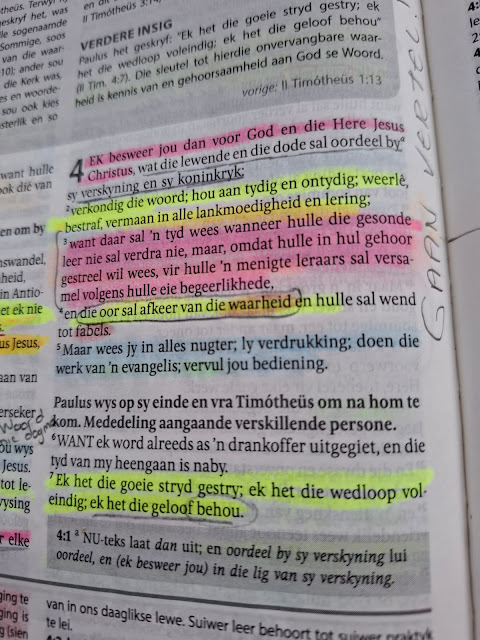 theüs. Terwyl
geskryf het, was
lle sogenaamde
Sommige, soos
van die waar-
10); ander sou
die Kerk was,
es en woorde-
sou ook kies
sterlik en so
II Timótheüs 3:14
VERDERE INSIG
Paulus het geskryf: "Ek het die goeie stryd gestry; ek
het die wedloop voleindig; ek het die geloof behou"
(II Tim. 4:7). Die sleutel tot hierdie onvervangbare waar-
heid is kennis van en gehoorsaamheid aan God se Woord.
vorige: II Timótheüs 1:13
want hulle
ook dié van
en om by
nswandel,
nheid,
in Antio-
et ek nie
s.
us Jesus,
aan van
erseker
Woord
ou wys
Jesus.
tot le-
vysing
r elke
4 EK besweer jou dan voor God en die Here Jesus
Christus, wat die lewende en die dode sal oordeel byª
sy verskyning en sy koninkryk;
²verkondig die woord; hou aan tydig en ontydig; weerlê,
bestraf, vermaan in alle lankmoedigheid en lering;
³want daar sal 'n tyd wees wanneer hulle die gesonde
leer nie sal verdra nie, maar, omdat hulle in hul gehoor
gestreel wil wees, vir hulle 'n menigte leraars sal versa-
mel volgens hulle eie begeerlikhede,
⁴en die oor sal afkeer van die waarheid en hulle sal wend
tot fabels.
⁵Maar wees jy in alles nugter; ly verdrukking; doen die
werk van 'n evangelis; vervul jou bediening.
Paulus wys op sy einde en vra Timótheüs om na hom te
kom. Mededeling aangaande verskillende persone.
⁶WANT ek word alreeds as 'n drankoffer uitgegiet, en die
tyd van my heengaan is naby.
⁷Ek het die goeie stryd gestry; ek het die wedloop vol-
eindig; ek het die geloof behou.
4:1 ª NU-teks laat dan uit; en oordeel by sy verskyning lui
oordeel, en (ek besweer jou) in die lig van sy verskyning.
van in ons daaglikse lewe. Suiwer leer behoort tot suiwer praktyk
te lei.
GAAN VERTEL